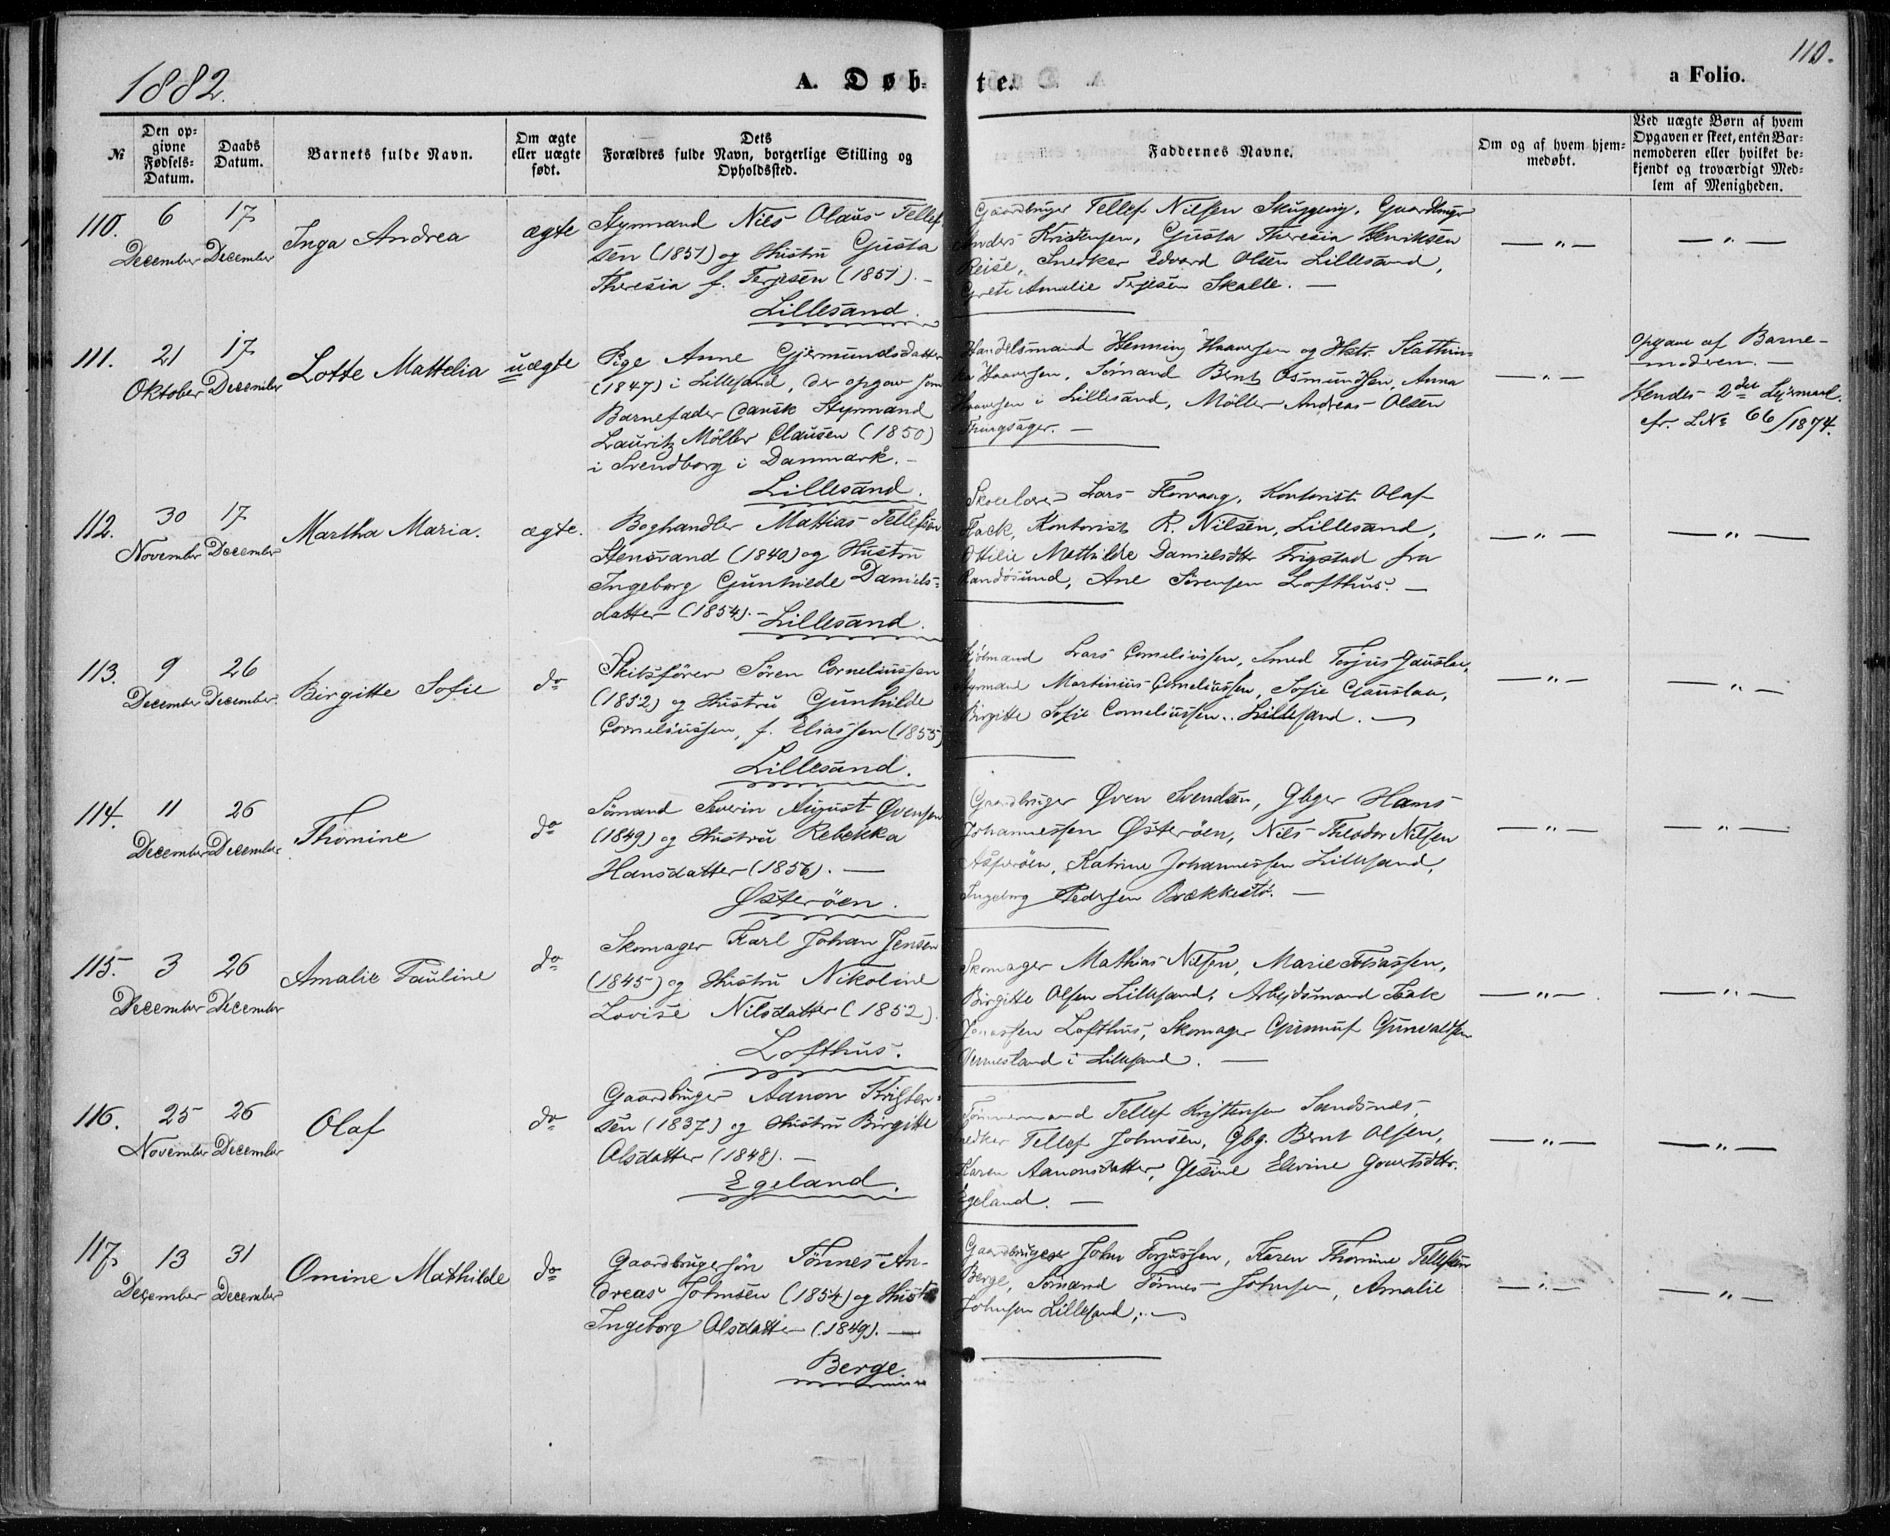 1882.
A. Døb-
te.
a Folio.
110.
№
Den op-
givne
Fødsels-
Datum.
Daabs
Datum.
Barnets fulde Navn.
Om ægte
eller uægte
født.
Dets
Forældres fulde Navn, borgerlige Stilling og
Opholdssted.
Faddernes Navne.
Om og af hvem hjem-
medøbt.
Ved uægte Børn af hvem
Opgaven er skeet, enten Bar-
nemoderen eller hvilket be-
kjendt og troværdigt Med-
lem af Menigheden.
110.
6
December
17
December
Inga Andrea
ægte
Styrmand Nils Olaus Tellef
sen (1851) og Hustru Gusta
Theresia f. Terjesen (1851). —
Lillesand.
Gaardbruger Tellef Nilsen Skuggevig, Gaardbruger
Anders Kristensen, Gusta Theresia Henriksen
Reise, Snedker Edvard Olsen Lillesand,
Grete Amalie Terjesen Skalle. —
— „ —
— „ —
111.
21
Oktober
17
December
Lotte Mattelia
uægte
Pige Anne Gjermundsdatter
(1847) i Lillesand, der opgav som
Barnefader dansk Styrmand
Lauritz Møller Clausen (1850)
i Svendborg i Danmark. —
Lillesand.
Handelsmand Henning Haaversen og Hstr. Kathrin-
ka Haaversen, Sømand Bernt Osmundsen, Anna
Haaversen i Lillesand, Møller Andreas Olsen
Thingsager. —
— „ —
Opgave af Barne-
moderen. —
Hendes 2den Lejermaal.
cfr. L№ 66/1874.
112.
30
November
17
December
Martha Maria.
ægte.
Boghandler Mattias Tellefsen
Stensvand (1840) og Hustru
Ingeborg Gunhilde Daniels-
datter (1854). —
Lillesand.
Skolelærer Lars Florvaag, Kontorist Olaf
Flack, Kontorist R. Nilsen, Lillesand,
Ottilie Methilde Danielsdtr Frigstad fra
Randøsund, Ane Sørensen Lofthus. —
— „ —
— „ —
113.
9
December
26
December.
Birgitte Sofie
do
Skibsfører Søren Corneliussen
(1852) og Hustru Gunhilde
Corneliussen, f. Eliassen (1855)
Lillesand.
Lars Corneliussen, Smed Torjus Gauslaa,
Styrmand Martinius Corneliussen, Sofie Gauslaa,
Birgitte Sofie Corneliussen. Lillesand. —
— „ —
— „ —
114.
11
December
26
December
Thomine
do
Sømand Severin August Øvensen
(1849) og Hustru Rebekka
Hansdatter (1856). —
Østerøen.
Gaardbruger Øven Svendsen, Gbger Hans
Johannessen Østerøen, Nils Theodor Nilsen
Asperøen, Katrine Johannessen Lillesand,
Ingeborg Pedersen Brækkestø. —
— „ —
— „ —
115.
3
December
26
December
Amalie Pauline
do
Skomager Karl Johan Jensen
(1845) og Hustru Nikoline
Lovise Nilsdatter (1852).
Lofthus.
Skomager Mathias Nilsen, Marie Tobiassen,
Birgitte Olsen Lillesand, Arbejdsmand Isak
Jonassen Lofthus, Skomager Gunnuf Gunvaldsen
Vennesland i Lillesand. —
— „ — .
— „ —
116.
25
November
26
December
Olaf
do
Gaardbruger Aanon Kristen-
sen (1837) og Hustru Birgitte
Olsdatter (1848). —
Egeland.
Tømmermand Tellef Kristensen Sandsnes,
Snedker Tellef Johnsen, Gbg. Bernt Olsen,
Karen Aanonsdatter, Gesine Elevine Govertsdtr.
Egeland. —
— „ —
— „ —
117.
13
December
31
December
Omine Mathilde
do
Gaardbrugersøn Tønnes An-
dreas Johnsen (1854) og Hustru
Ingeborg Olsdatter (1849). —
Berge.
Gaardbruger John Torjussen, Karen Thomine Tellefsen
Berge, Sømand Tønnes Johnsen, Amalie
Johnsen Lillesand. —
— „ —
— „ —